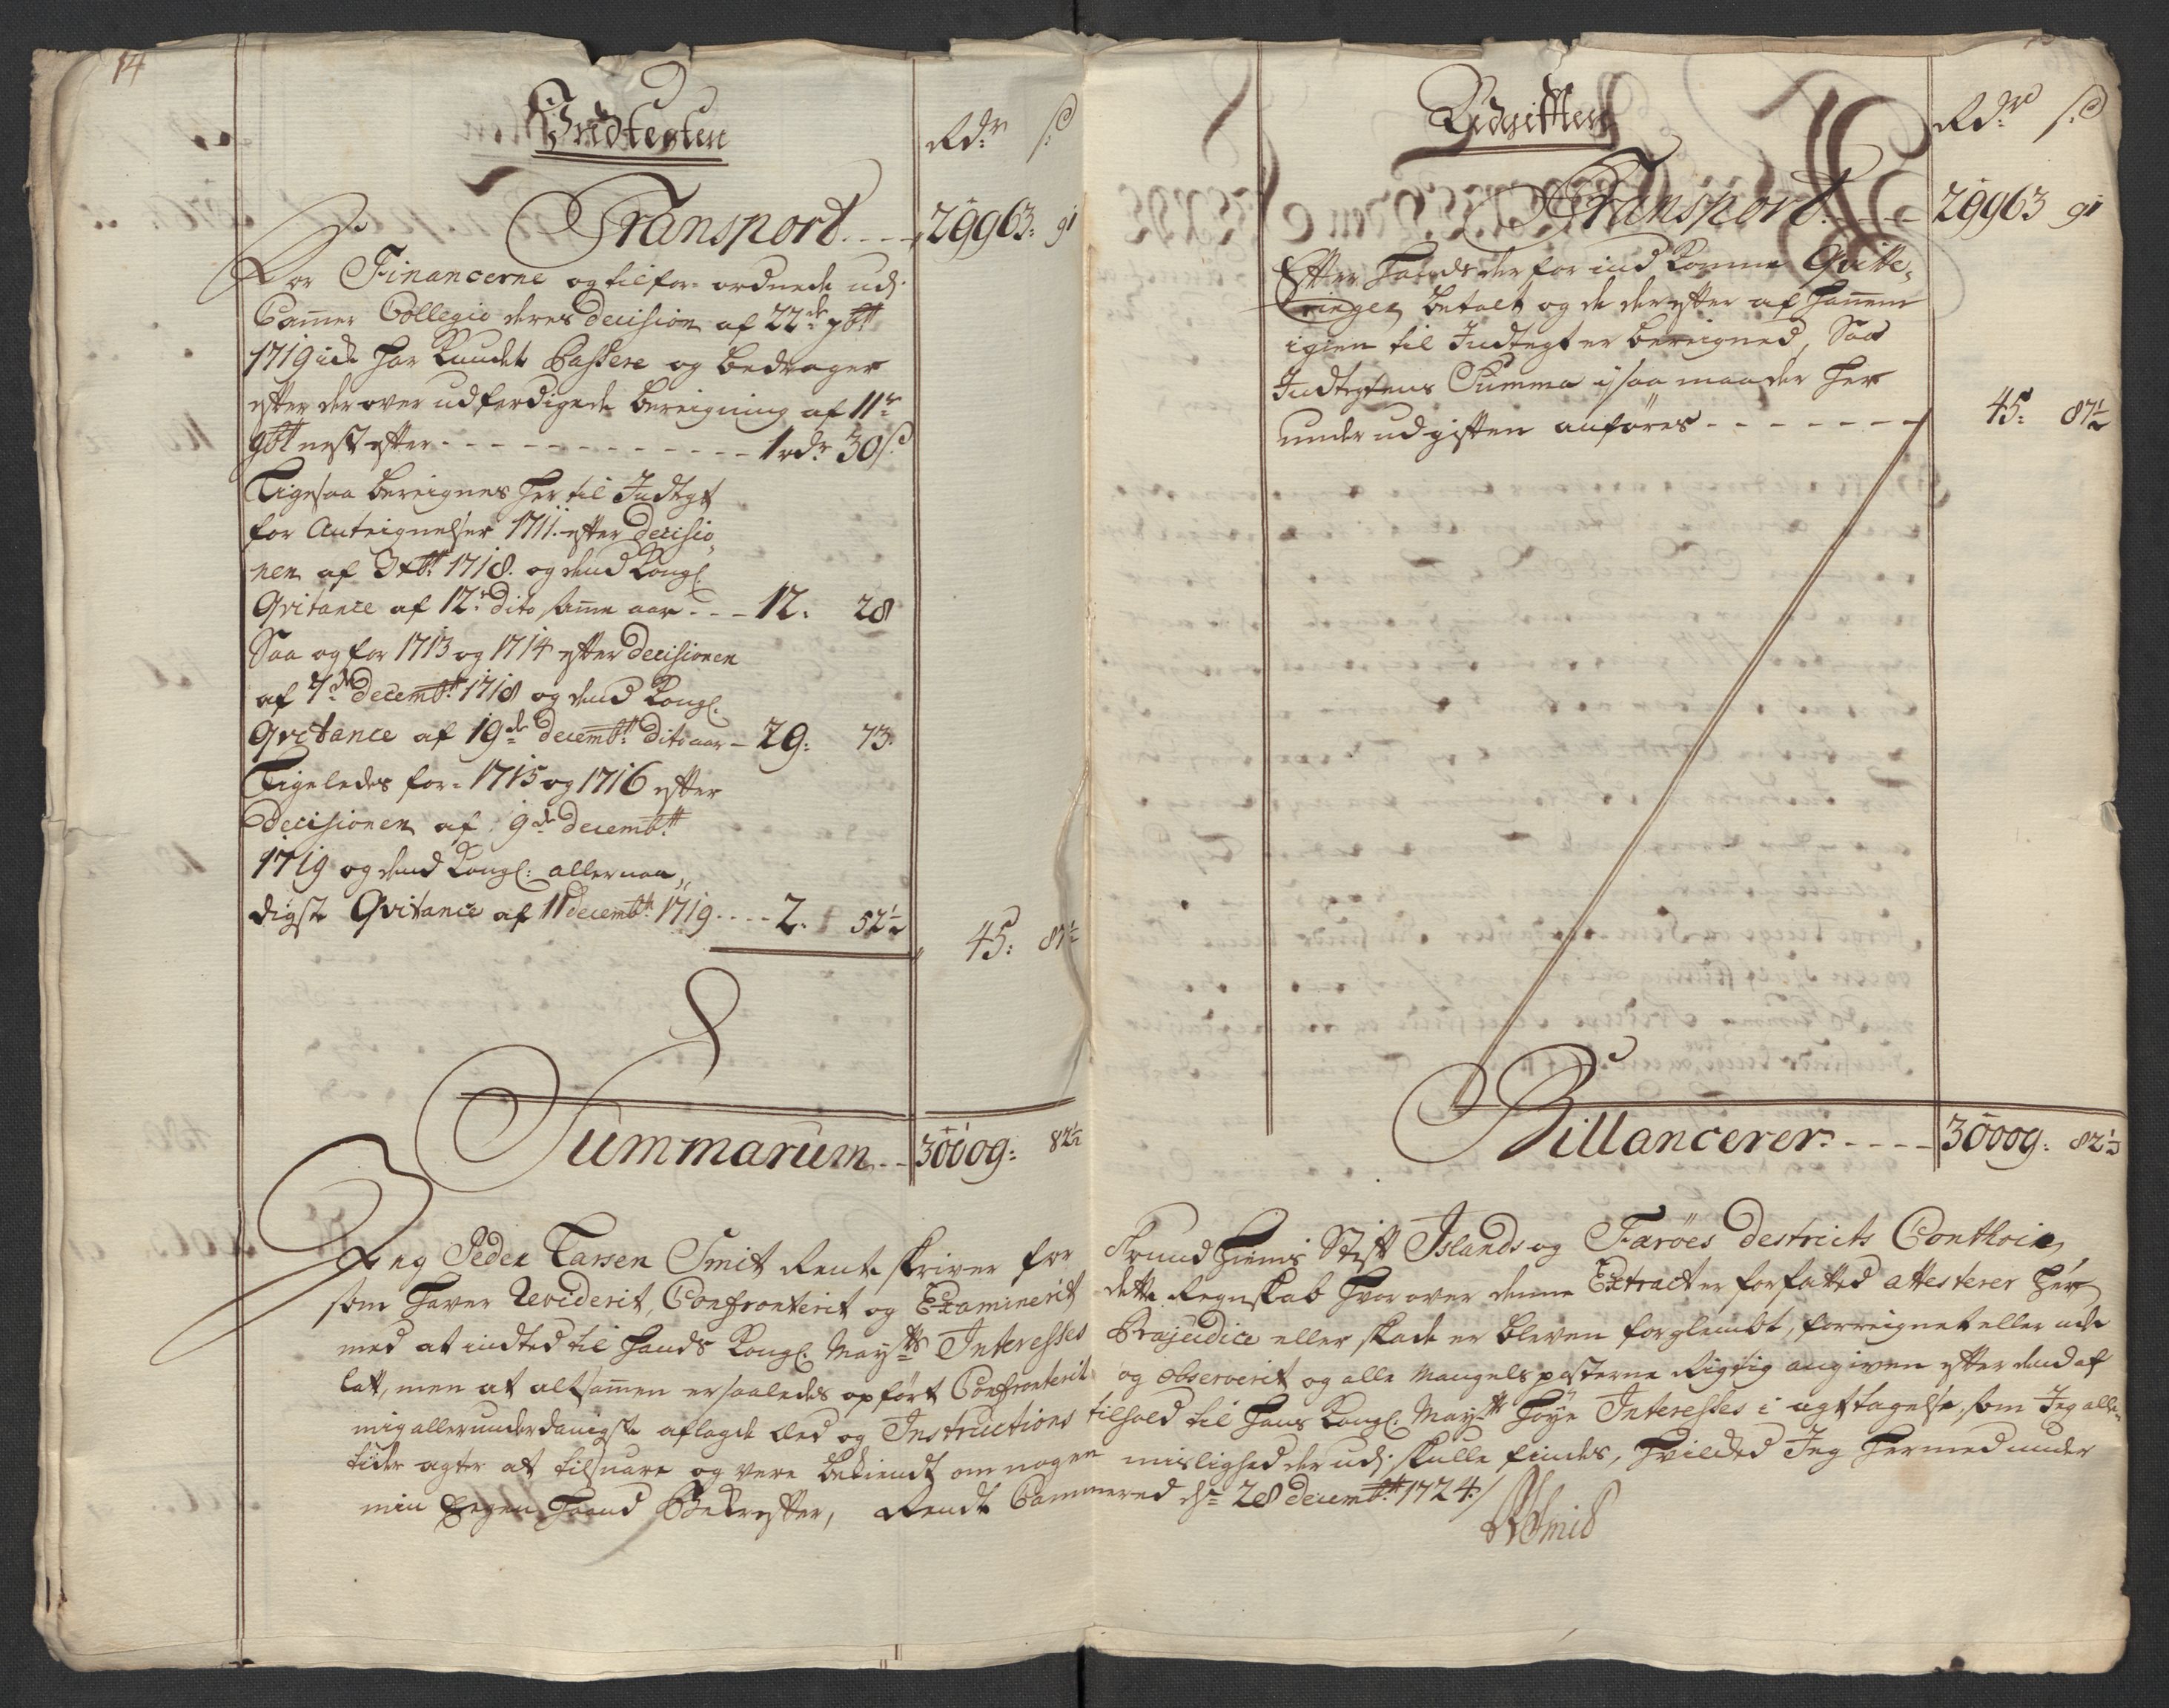 14
Indtegten
Rdr ß
Transport - - - 29963: 91
For Financerne og tilfor-ordnede udj
Cammer Collegio deres decision af 22de 7bt
1719 icke har kundet Passere og bedrager
efter der over udferdigede bereigning af 11te
9bt nest efter - - - - - - - - - 1 rdr 30 ß
Ligesaa bereignes her til Indtegt
for Anteignelser 1711. efter decisio,
nen af 3 xbt 1718. og dend Kongl.
Qvitance af 12te dito samme aar - - - 12. 28
Saa og for 1713 og 1714 efter decisionen
af 7de decembt: 1718 og dend Kongl.
Qvitance af 19de decembt: dito aar - 29: 73.
Ligeledes for- 1715 og 1716 efter
decisionen af 9de decembt:
1719 og dend Kongl: allernaa,,
digste Qvitance af 11 decembt: 1719 - - - - 2. 52½
45: 87½
Summarum - - 30009: 82½
Udgifften
Rdr ß
Transport - - - - 29963 91
Efter hands derfor ind komne Qvitte,
ringer betalt og de derefter af hannem
igien til Indtegt er bereigned, Saa
Indtegtens Summa i saa maader her
under udgiften anføres - - - - - - - 45: 87½
Billancerer - - - - 30009: 82½
Jeg Peder Larsen Smit Rente skriver for Trundhiems Stift Islands og Færöes destricts Conthoir,
som haver Reviderit, Confronterit og Examinerit dette Regnskab hvorover denne Extract er forfatted attesterer her
med at indted til hands Kongl. Mayts Interesses Præjudice eller skade er bleven forglembt, forreignet eller ude
latt, men at altsammen er saaledes opført Confronterit og observerit og alle Mangels posterne Rigtig angiven efter dend af
mig allerunderdanigste aflagde Eed og Instructions tilhold til hans Kongl. Mayts høye Interesses i agttagelse, som Jeg alle,
tider agter at tilsvare og vere bekiendt om nogen mislighed der udj skulle findes, hvilked Jeg hermed under
min Egen Haand Bekrefter, Rendte Cammered dn 28 decembt: 1724./
PLSmid